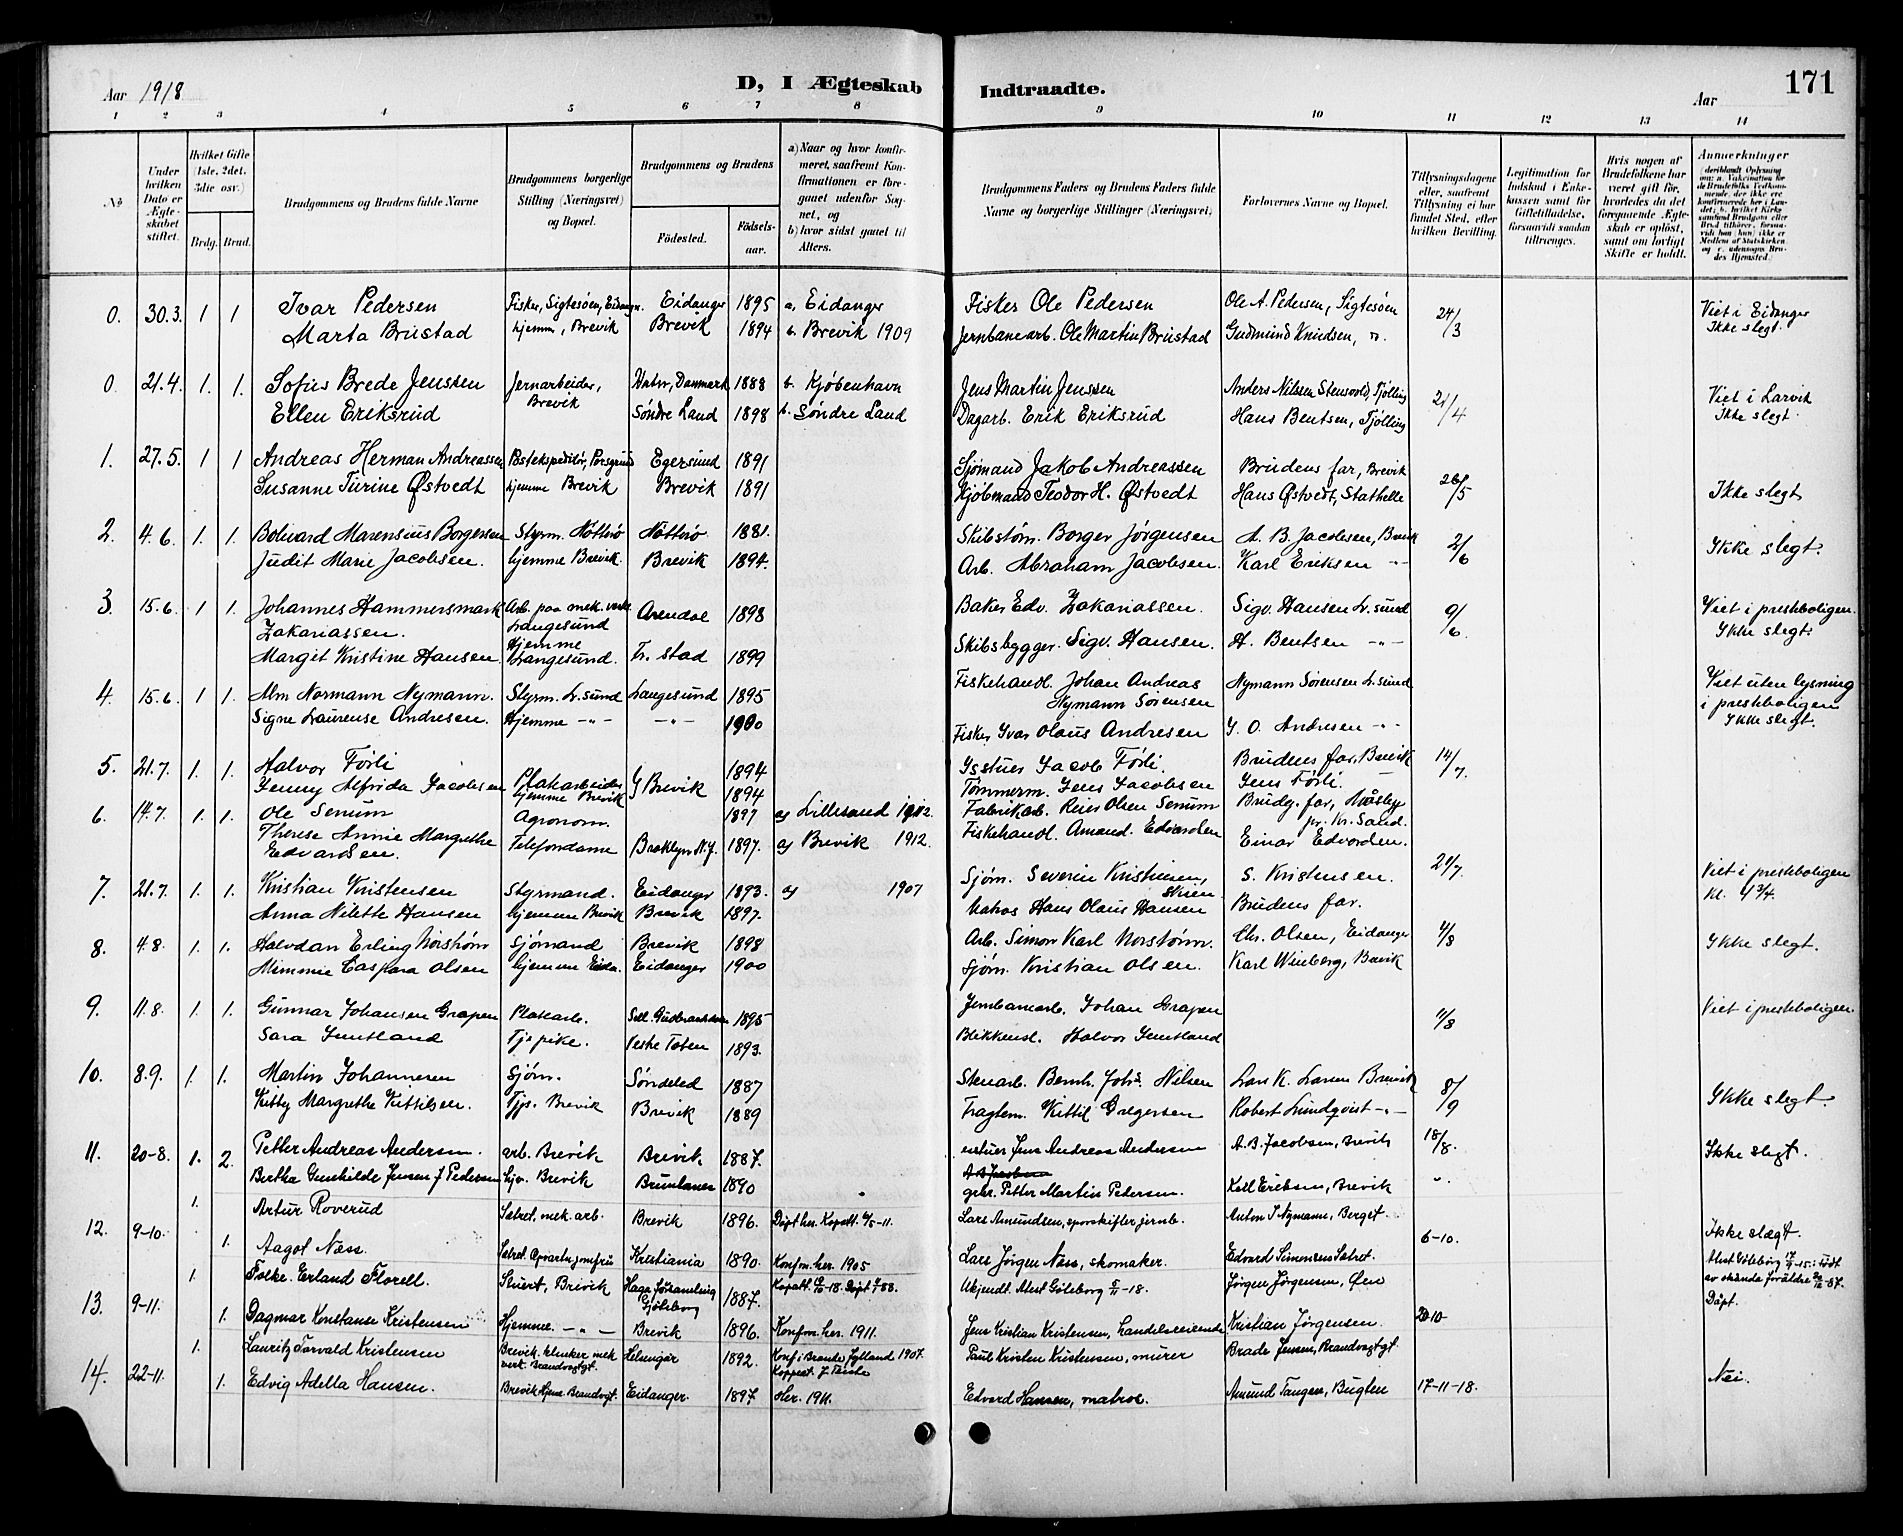 Aar 1918. D, I Ægteskab Indtraadte. Aar 171
1 2 3 4 5 6 7 8 9 10 11 12 13 14
No
Under hvilken Dato er Ægte-skabet stiftet.
Hvilket Gifte (1ste, 2det, 3die osv.)
Brdg. Brud.
Brudgommens og Brudens fulde Navne
Brudgommens borgerlige Stilling (Næringsvei) og Bopæl.
Brudgommens og Brudens
Fødested. Fødsels-aar.
a) Naar og hvor konfirmeret, saafremt Konfirmationen er foregaaet udenfor Sognet, og
b) hvor sidst gaaet til Alters.
Brudgommens Faders og Brudens Faders fulde Navne og borgerlige Stillinger (Næringsvei)
Forlovernes Navne og Bopæl.
Tillysningsdagene eller, saafremt Tillysning ei har fundet Sted, efter hvilken Bevilling.
Legitimation for Indskud i Enkekassen samt for Giftetilladelse, forsaavidt saadan tiltrænges.
Hvis nogen af Brudefolkene har været gift før, hvorledes da det foregaaende Ægteskab er opløst, samt om lovligt Skifte er holdt.
Anmerkninger
0. 30.3. 1 1 Ivar Pedersen Fisker, Sigtesøen, Eidanger. Eidanger 1895 a, Eidanger Fisker Ole Pedersen Ole A. Pedersen, Sigtesøen 24/3 Viet i Eidanger
Marta Brustad hjemme, Brevik Brevik 1894 b. Brevik 1909 Jernbanearb. Ole Martin Brustad Gudmund Knudsen, Ikke slegt.
0. 21.4. 1. 1. Sofus Brede Jenssen Jernarbeider, Brevik Danmark 1888 b. Kjøbenhavn Jens Martin Jenssen Anders Nilsen Stensvold, Tjølling 21/4 Viet i Larvik
Ellen Eriksrud Søndre Land 1898 b. Søndre Land Dagarb. Erik Eriksrud Hans Bentsen, Tjølling Ikke slegt.
1. 27.5. 1 1 Andreas Herman Andreassen Postekspeditør, Porsgrund Egersund 1891 Sjømand Jakob Andreassen Brudens far, Brevik 26/5
Susanne Turine Østvedt hjemme Brevik Brevik 1891 Kjøbmand Teodor H. Østvedt Hans Østvedt, Stathelle Ikke slegt
2. 4.6. 1. 1. Bolvard Marensius Borgersen Styrm. Nøtterø Nøtterø 1881. Skibstørm. Borger Jørgensen A. B. Jacobsen, Brevik 2/6
Judit Marie Jacobsen. hjemme Brevik. Brevik 1894. Arb. Abraham Jacobsen. Karl Eriksen -"- Ikke slegt.
3. 15.6. 1 1. Johannes Hammersmark Arb. paa mek. verk. Langesund Arendal 1898 Baker Edv. Zakariassen. Sigv. Hansen L.sund 9/6. Viet i presteboligen.
Zakariassen. Ikke slegt.
Margit Kristine Hansen Hjemme Langesund. Fr. stad 1899 Skibsbygger. Sigv. Hansen. H. Bentsen -"-
4. 15.6. 1 1. Alm Normann Nymann. Styrm. L.sund Langesund 1895 Fiskehandl. Johan Andreas Nymann Sørensen Nymann Sørensen L.sund Viet uten lysning i presteboligen
Signe Laurense Andresen. Hjemme -"- -"- 1900 Fisker Ivar Olaus Andresen I. O. Andresen -"- Ikke slegt.
5. 21.7. 1. 1. Halvor Førli 1894 Jacob Førli. Brudens far, Brevik 14/7.
Jenny Alfrida Jacobsen Platearbeider hjemme Brevik Brevik 1894 Tømmerm. Jens Jacobsen Jens Førli.
6. 14.7. 1. 1. Ole Senum Agronom. 1897 a) Lillesand 1912. Fabrikarb. Reier Olsen Senum Brudg. far, Mosby pr. Kr. Sand.
Therese Annie Margrethe Edvardsen. Telefondame Broklyn N.Y. 1897. a) Brevik 1912. Fiskehandl. Amand. Edvardsen Einar Edvardsen.
7. 21.7. 1. 1. Kristian Kristensen Styrmand. Eidanger 1893. a) 1907 Sjøm. Severin Kristensen, Skien S. Kristensen. 21/7. Viet i presteboligen
Anna Nilette Hansen hjemme Brevik Brevik 1897. Matros Hans Olaus Hansen Brudens far.
8. 4.8. 1. 1. Halvdan Erling Norstrøm Sjømand Brevik 1898 Arb. Simon Karl Norstrøm. Chr. Olsen, Eidanger 4/8 Ikke slegt.
Mimmie Caspara Olsen hjemme Eida. Eidanger 1900 Sjøm. Kristian Olsen. Karl Winberg, Brevik
9. 11.8. 1. 1. Gunnar Johansen Grapen Platearb. 1895 Jernbanearb. Johan Grapen 11/8 Viet i presteboligen.
Sara Jemtland Tj. pike. Vestre Toten 1893. Blikkensl. Halvor Jemtland
10. 8.9. 1. 1. Martin Johannesen Sjøm. Søndeled 1887 Stenarb. Bernh. Johs. Nilsen Lars K. Larsen Brevik 8/9
Kitty Margrethe Kittilsen. Tjs. Brevik Brevik 1889 Fragtem. Kittil Gregersen Robert Lundqvist -"- Ikke slegt.
11. 20-8. 1. 2. Petter Andreas Andersen. arb. Brevik Brevik 1887. Jens Andreas Andersen A. B. Jacobsen, Brevik 18/8. Ikke slegt.
Bertha Gunhilde Jensen f Pedersen Brevik Brunlanes 1890 Petter Martin Pedersen. Ketil Eriksen, Brevik
12. 9-10. 1. Artur Roverud Salret. mek. arb. Brevik 1896. Lars Amundsen, sporskifter jernb. Anton T Nymann, Berget. 6-10. Ikke slægt.
1. Aagot Næss. Salret Opvartn.jomfru Kristiania 1890. Konfm. her. 1905 Lars Jørgen Næss, skomaker. Edvard Simonsen Salret.
13. 9-11. 1. Folke. Erland Florell. Brevik Haga församling Gjøteborg 1887. Ukjendt. Atest Göteborg 5/11-18. Jørgen Jørgensen, Øen
1. Dagmar Konstanse Kristensen Hjemme. -"- Brevik 1896. Konfm. her. 1911. Jens Kristian Kristensen, handelsreisende Kristian Jørgensen. 20-10 Döpt.
14. 22-11. 1. Lauritz Torvald Kristensen Brevik. klinker mek verk. Brandvagtgt. Helsingør 1892. Konf. i Brande Jylland 1907. Paul Kristen Kristensen, murer Brade Jensen, Brandvagtgt. Nei.
1. Edvig Adella Hansen. Brevik Hjem. Brandvgt. Eidanger. 1897. Her. 1911. Edvard Hansen, matros. Amund Tangen, Bugten 17-11-18.